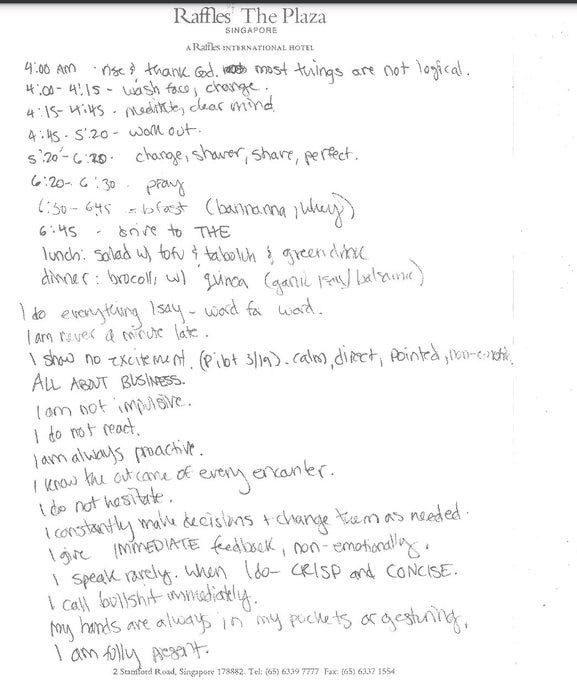 Raffles The Plaza
SINGAPORE
A Raffles INTERNATIONAL HOTEL
4:00 AM rise & thank God. most things are not logical.
4:00 - 4:15 - wash face, change.
4:15 - 4:45 - meditate, clear mind
4:45 - 5:20 - work out.
5:20 - 6:20. change, shower, shave, perfect.
6:20 - 6:30. pray
6:30 - 645 = bfast (bannanna, whey)
6:45 - drive to THE
lunch: salad w/ tofu & &
dinner: w/ quinoa
I do everything I say - word for word.
I am never a minute late.
I show no excitement. calm, direct, pointed, non-emotional.
ALL ABOUT BUSINESS.
I am not impulsive.
I do not react.
I am always proactive.
I know the outcome of every encounter.
I do not hesitate.
I constantly make decisions + change them as needed.
I give IMMEDIATE feedback, non-emotionally.
I speak rarely. When I do - CRISP and CONCISE.
I call bullshit immediately.
My hands are always in my pockets or gesturing.
I am fully present.
2 Stamford Road, Singapore 178882. Tel: (65) 6339 7777 Fax: (65) 6337 1554